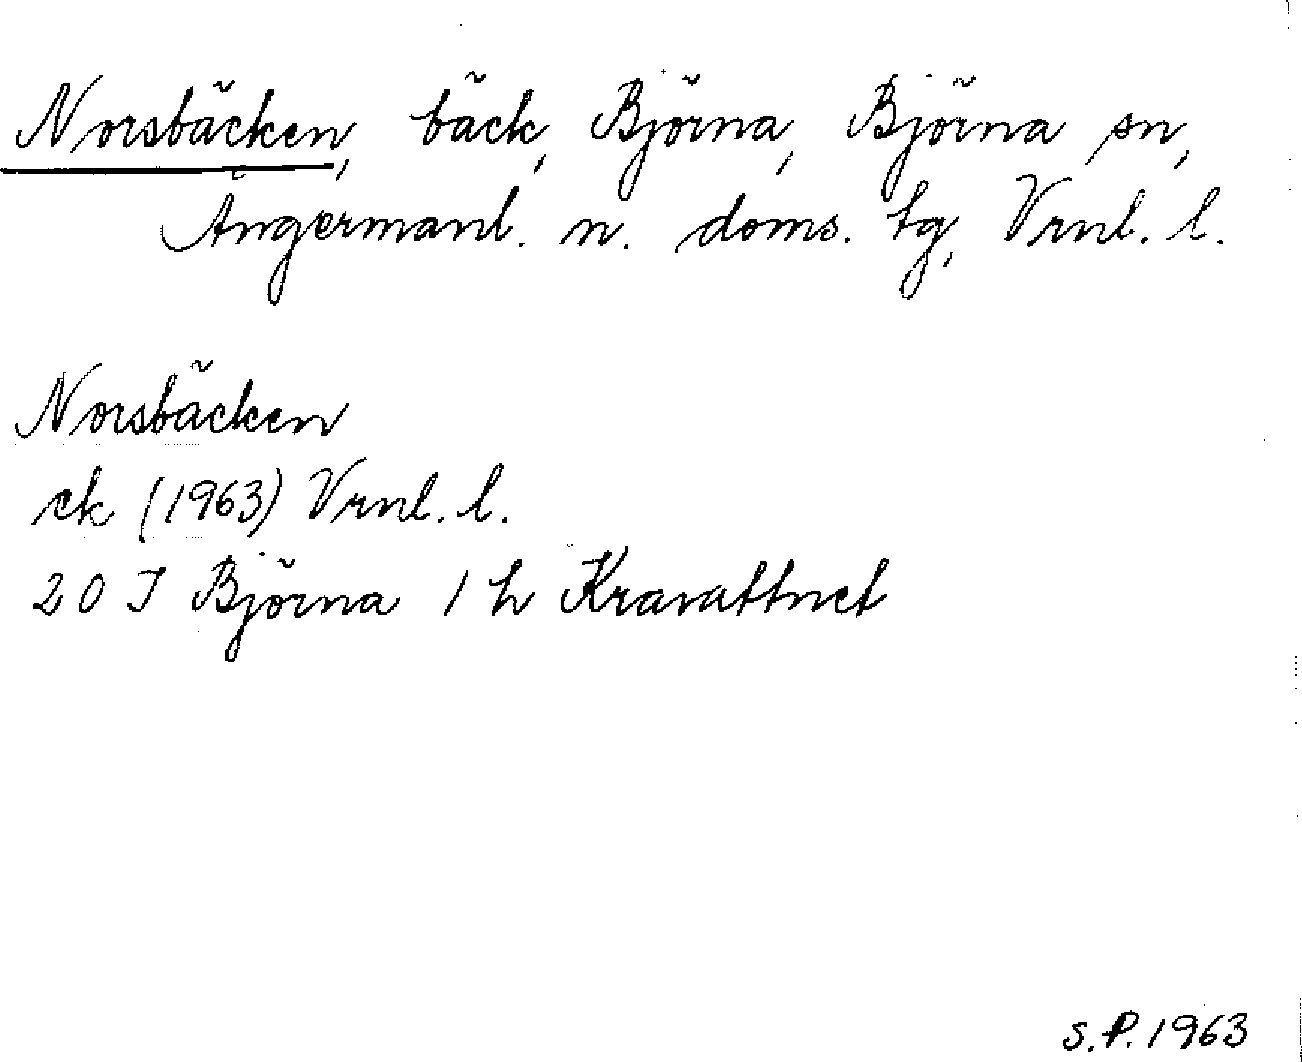 Norsbäcken, bäck, Björna, Björna sn,
Ångermanl. n. doms. tg, Vrnl. l.
Norsbäcken
ek (1963) Vrnl. l.
20 I Björna 1 h Kravattnet
S.P. 1963